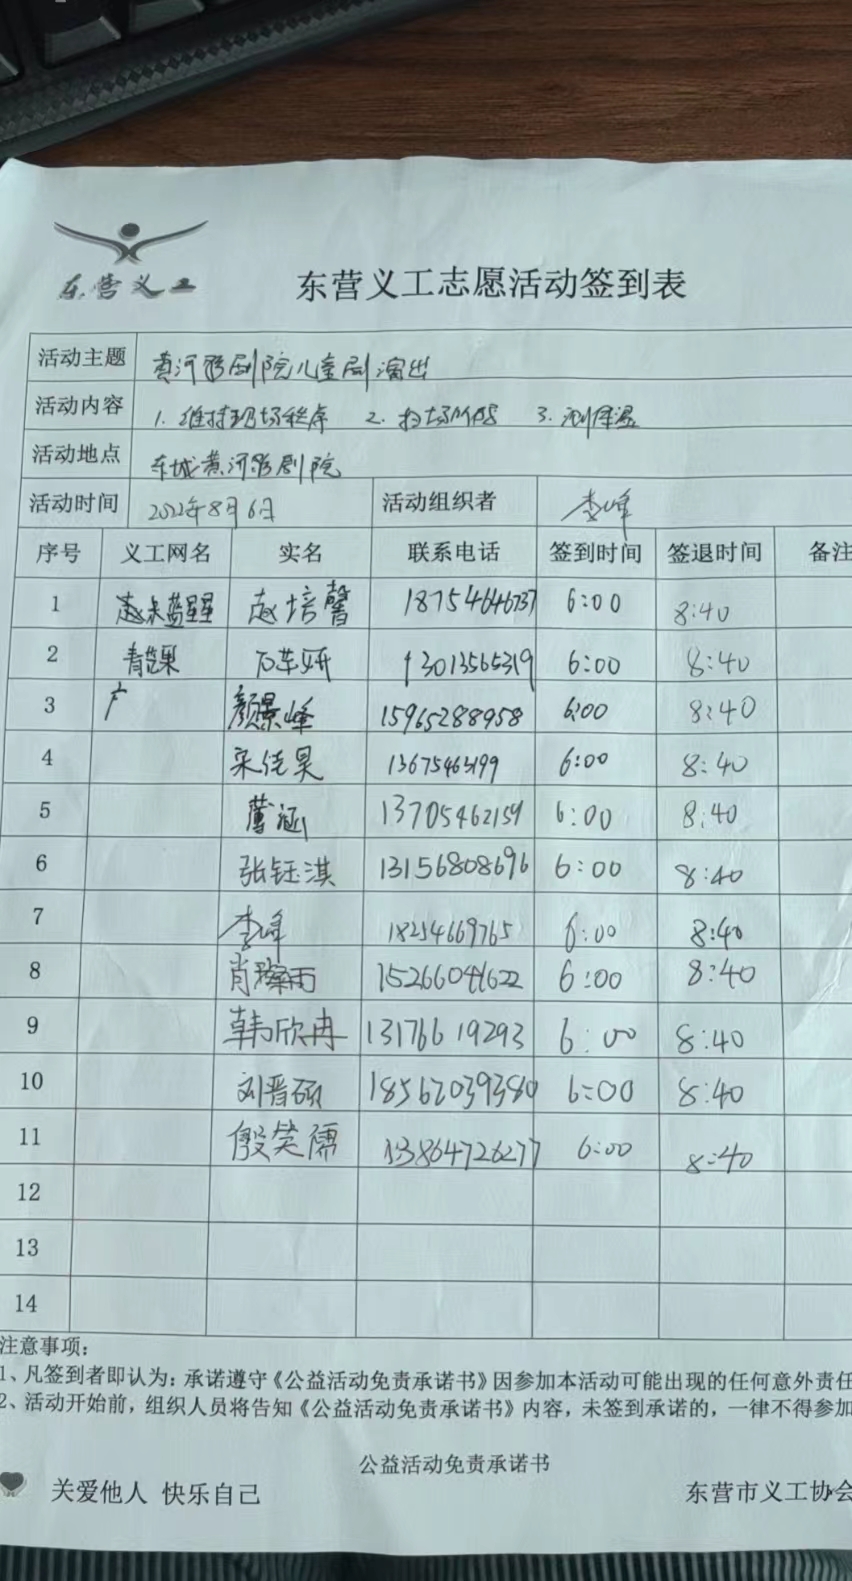 东营义工
东营义工志愿活动签到表
活动主题 黄河影剧院儿童剧演出
活动内容 1. 维持现场秩序 2. 扫场所码 3. 测体温
活动地点 东城黄河影剧院
活动时间 2022年8月6日 活动组织者 李峰
序号 义工网名 实名 联系电话 签到时间 签退时间 备注
1 赵培馨 18754646737 6:00 8:40
2 青苹果 13013565319 6:00 8:40
3 广 颜景峰 15965288958 6:00 8:40
4 宋佳昊 13675465199 6:00 8:40
5 董涵 13705462159 6:00 8:40
6 张钰淇 13156808696 6:00 8:40
7 李峰 18254669765 6:00 8:40
8 15266041622 6:00 8:40
9 韩欣冉 13176619293 6:00 8:40
10 刘晋硕 18562039380 6:00 8:40
11 殷笑儒 13864726277 6:00 8:40
12
13
14
注意事项：
1、凡签到者即认为：承诺遵守《公益活动免责承诺书》因参加本活动可能出现的任何意外责任
2、活动开始前，组织人员将告知《公益活动免责承诺书》内容，未签到承诺的，一律不得参加
公益活动免责承诺书
关爱他人 快乐自己 东营市义工协会